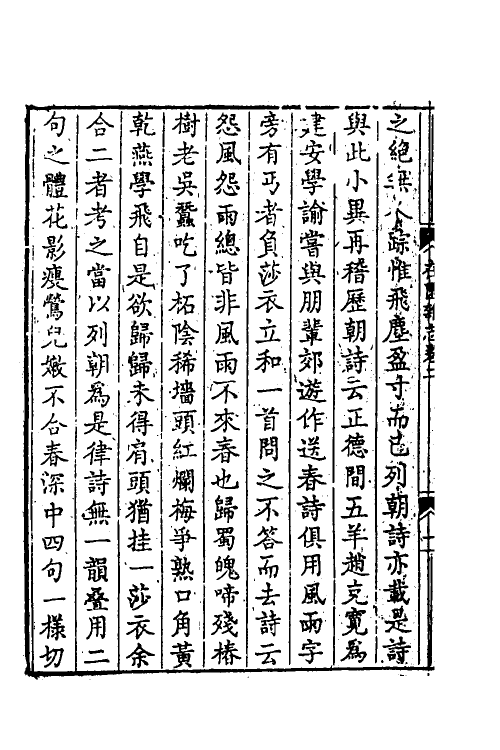 之絕無人踪惟飛塵盈寸而已列朝詩亦載是詩
與此小異再稽歷朝詩云正德間五羊趙克寬爲
建安學諭嘗與朋輩郊遊作送春詩俱用風雨字
旁有丐者負莎衣立和一首問之不答而去詩云
怨風怨雨總皆非風雨不來春也歸蜀魄啼殘椿
樹老吳蠶吃了柘陰稀墻頭紅爛梅爭熟口角黃
乾燕學飛自是欲歸歸未得肩頭猶挂一莎衣余
合二者考之當以列朝爲是律詩無一韻叠用二
句之體花影瘦鶯兒嫩不合春深中四句一樣切
在園雜志卷二